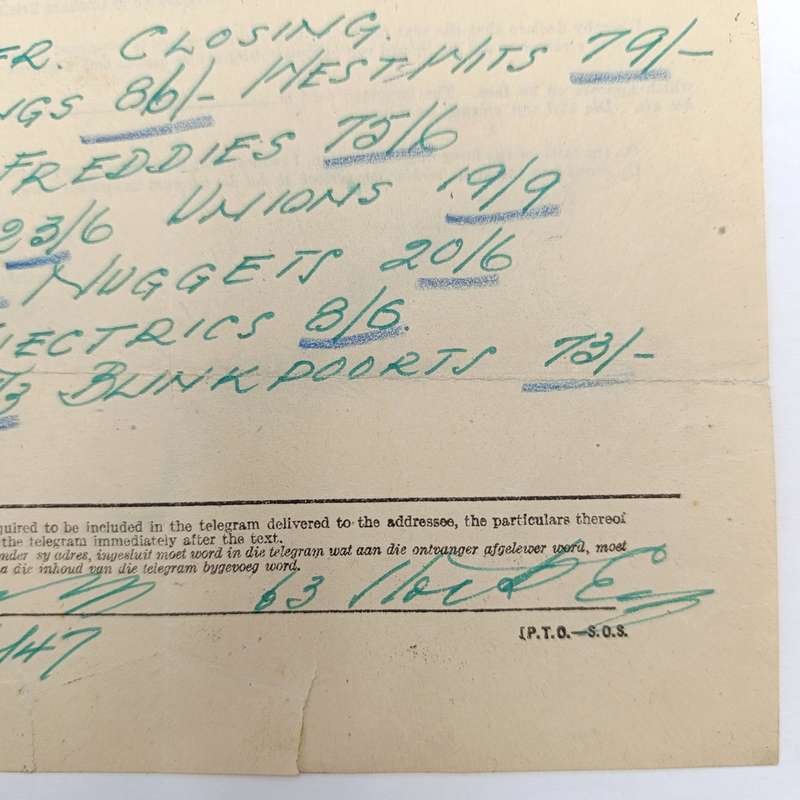 FR. CLOSING.
NGS 86/- WEST-WITS 79/-
FREDDIES 75/6
23/6 UNIONS 19/9
NUGGETS 20/6
LECTRICS 8/6.
BLINKPOORTS 73/-
quired to be included in the telegram delivered to the addressee, the particulars thereof
the telegram immediately after the text.
nder sy adres, ingesluit moet word in die telegram wat aan die ontvanger afgelewer word, moet
a die inhoud van die telegram bygevoeg word.
63
147
[P.T.O.—S.O.S.